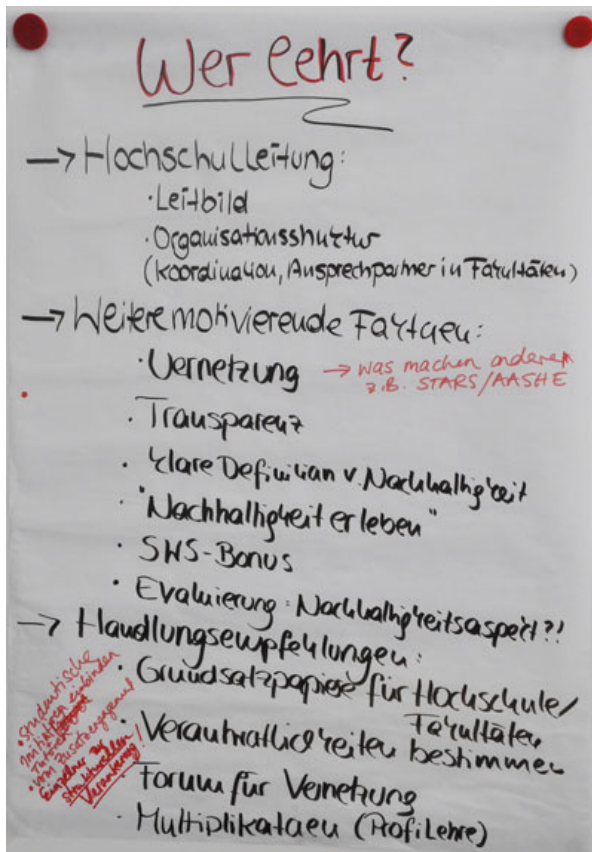 Wer lehrt?
→ Hochschulleitung:
· Leitbild
· Organisationsstruktur
(Koordination, Ansprechpartner in Fakultäten)
→ Weitere motivierende Faktoren:
· Vernetzung → was machen anderen
z.B. STARS/AASHE
· Transparenz
· klare Definition v. Nachhaltigkeit
· "Nachhaltigkeit erleben"
· SWS-Bonus
· Evaluierung: Nachhaltigkeitsaspekt?!
→ Handlungsempfehlungen:
· Grundsatzpapiere für Hochschule/
Fakultäten
· Verantwortlichkeiten bestimmen
Forum für Vernetzung
· Multiplikatoren (ProfiLehre)
· studentische
Initiativen einbinden
· vom Einzelengagement
Einzelner zu
strukturellen
Verankerung!